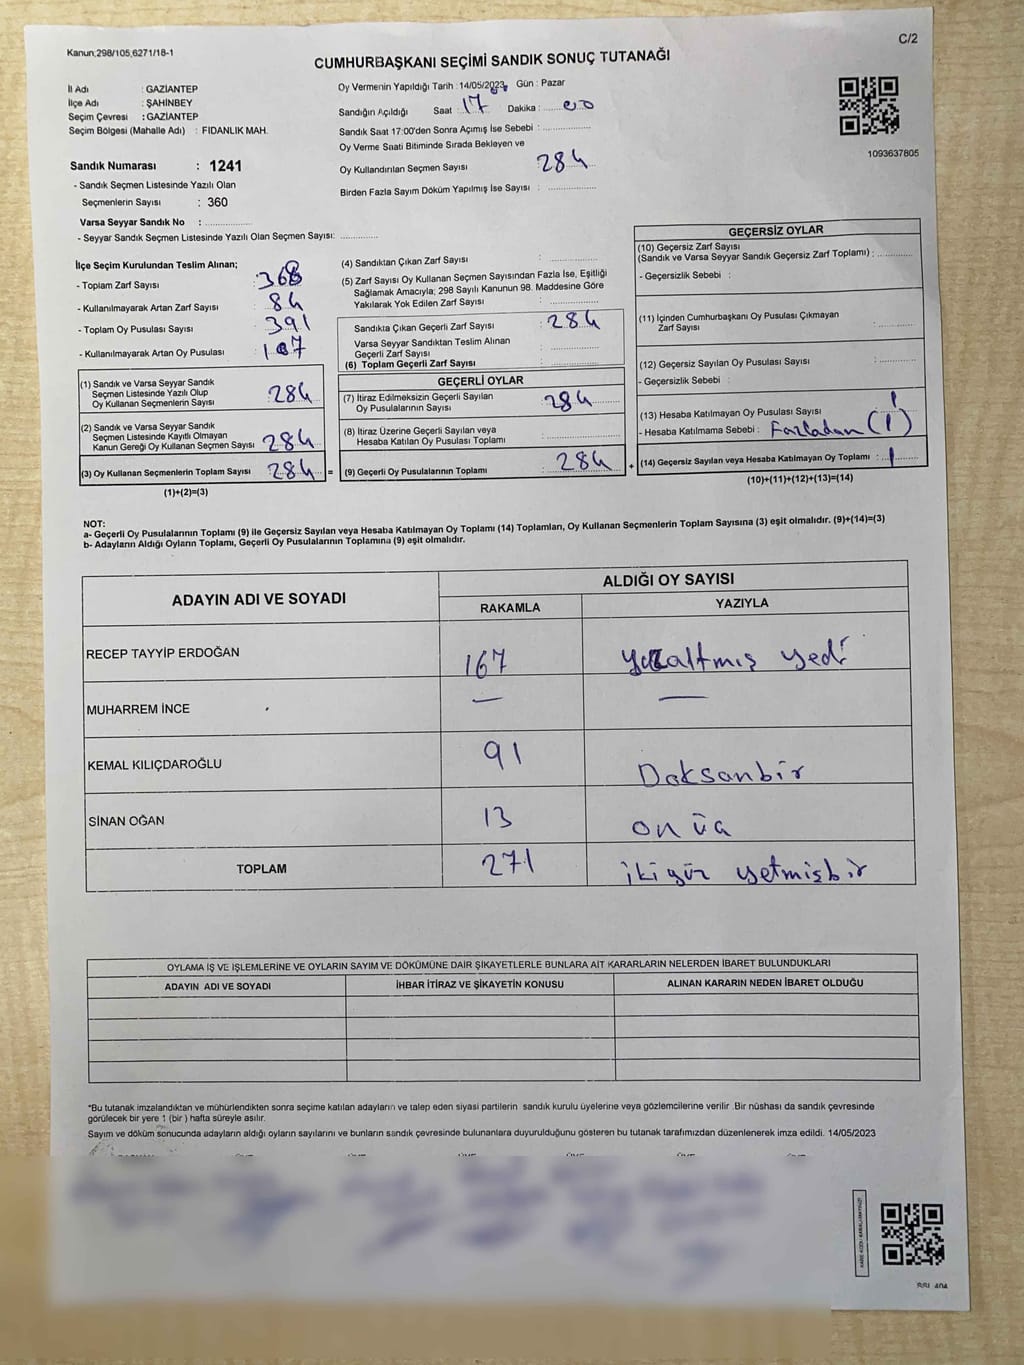 Kanun:298/105,6271/18-1
C/2
CUMHURBAŞKANI SEÇİMİ SANDIK SONUÇ TUTANAĞI
İl Adı : GAZİANTEP
İlçe Adı : ŞAHİNBEY
Seçim Çevresi : GAZİANTEP
Seçim Bölgesi (Mahalle Adı) : FIDANLIK MAH.
Sandık Numarası : 1241
- Sandık Seçmen Listesinde Yazılı Olan
Seçmenlerin Sayısı : 360
Varsa Seyyar Sandık No : ..............
- Seyyar Sandık Seçmen Listesinde Yazılı Olan Seçmen Sayısı: ............
Oy Vermenin Yapıldığı Tarih : 14/05/2023, Gün : Pazar
Sandığın Açıldığı Saat : 17 Dakika : 00
Sandık Saat 17:00'den Sonra Açımış İse Sebebi : ..............
Oy Verme Saati Bitiminde Sırada Bekleyen ve
Oy Kullandırılan Seçmen Sayısı 284
Birden Fazla Sayım Döküm Yapılmış İse Sayısı : ..............
1093637805
İlçe Seçim Kurulundan Teslim Alınan;
- Toplam Zarf Sayısı : 368
- Kullanılmayarak Artan Zarf Sayısı : 84
- Toplam Oy Pusulası Sayısı : 391
- Kullanılmayarak Artan Oy Pusulası : 107
(1) Sandık ve Varsa Seyyar Sandık
Seçmen Listesinde Yazılı Olup
Oy Kullanan Seçmenlerin Sayısı : 284
(2) Sandık ve Varsa Seyyar Sandık
Seçmen Listesinde Kayıtlı Olmayan
Kanun Gereği Oy Kullanan Seçmen Sayısı 284
(3) Oy Kullanan Seçmenlerin Toplam Sayısı 284 =
(1)+(2)=(3)
(4) Sandıktan Çıkan Zarf Sayısı : ..............
(5) Zarf Sayısı Oy Kullanan Seçmen Sayısından Fazla İse, Eşitliği
Sağlamak Amacıyla; 298 Sayılı Kanunun 98. Maddesine Göre
Yakılarak Yok Edilen Zarf Sayısı : ..............
Sandıkta Çıkan Geçerli Zarf Sayısı : 284
Varsa Seyyar Sandıktan Teslim Alınan
Geçerli Zarf Sayısı : ..............
(6) Toplam Geçerli Zarf Sayısı : ..............
GEÇERLİ OYLAR
(7) İtiraz Edilmeksizin Geçerli Sayılan
Oy Pusulalarının Sayısı : 284
(8) İtiraz Üzerine Geçerli Sayılan veya
Hesaba Katılan Oy Pusulası Toplamı : ..............
(9) Geçerli Oy Pusulalarının Toplamı : 284 +
GEÇERSİZ OYLAR
(10) Geçersiz Zarf Sayısı
(Sandık ve Varsa Seyyar Sandık Geçersiz Zarf Toplamı) : ............
- Geçersizlik Sebebi :
(11) İçinden Cumhurbaşkanı Oy Pusulası Çıkmayan
Zarf Sayısı : ............
(12) Geçersiz Sayılan Oy Pusulası Sayısı : ............
- Geçersizlik Sebebi :
(13) Hesaba Katılmayan Oy Pusulası Sayısı : 1
- Hesaba Katılmama Sebebi : Fazladan (1)
(14) Geçersiz Sayılan veya Hesaba Katılmayan Oy Toplamı : 1
(10)+(11)+(12)+(13)=(14)
NOT:
a- Geçerli Oy Pusulalarının Toplamı (9) ile Geçersiz Sayılan veya Hesaba Katılmayan Oy Toplamı (14) Toplamları, Oy Kullanan Seçmenlerin Toplam Sayısına (3) eşit olmalıdır. (9)+(14)=(3)
b- Adayların Aldığı Oyların Toplamı, Geçerli Oy Pusulalarının Toplamına (9) eşit olmalıdır.
ADAYIN ADI VE SOYADI
ALDIĞI OY SAYISI
RAKAMLA YAZIYLA
RECEP TAYYİP ERDOĞAN 167 yüzaltmış yedi
MUHARREM İNCE — —
KEMAL KILIÇDAROĞLU 91 Doksanbir
SİNAN OĞAN 13 on üç
TOPLAM 271 ikiyüz yetmişbir
OYLAMA İŞ VE İŞLEMLERİNE VE OYLARIN SAYIM VE DÖKÜMÜNE DAİR ŞİKAYETLERLE BUNLARA AİT KARARLARIN NELERDEN İBARET BULUNDUKLARI
ADAYIN ADI VE SOYADI İHBAR İTİRAZ VE ŞİKAYETİN KONUSU ALINAN KARARIN NEDEN İBARET OLDUĞU
*Bu tutanak imzalandıktan ve mühürlendikten sonra seçime katılan adayların ve talep eden siyasi partilerin sandık kurulu üyelerine veya gözlemcilerine verilir .Bir nüshası da sandık çevresinde
görülecek bir yere 1 (bir ) hafta süreyle asılır.
Sayım ve döküm sonucunda adayların aldığı oyların sayılarını ve bunların sandık çevresinde bulunanlara duyurulduğunu gösteren bu tutanak tarafımızdan düzenlenerek imza edildi. 14/05/2023